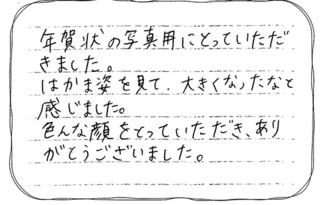 年賀状の写真用にとっていただ
きました。
はかま姿を見て、大きくなったなと
感じました。
色んな顔をとっていただき、あり
がとうございました。